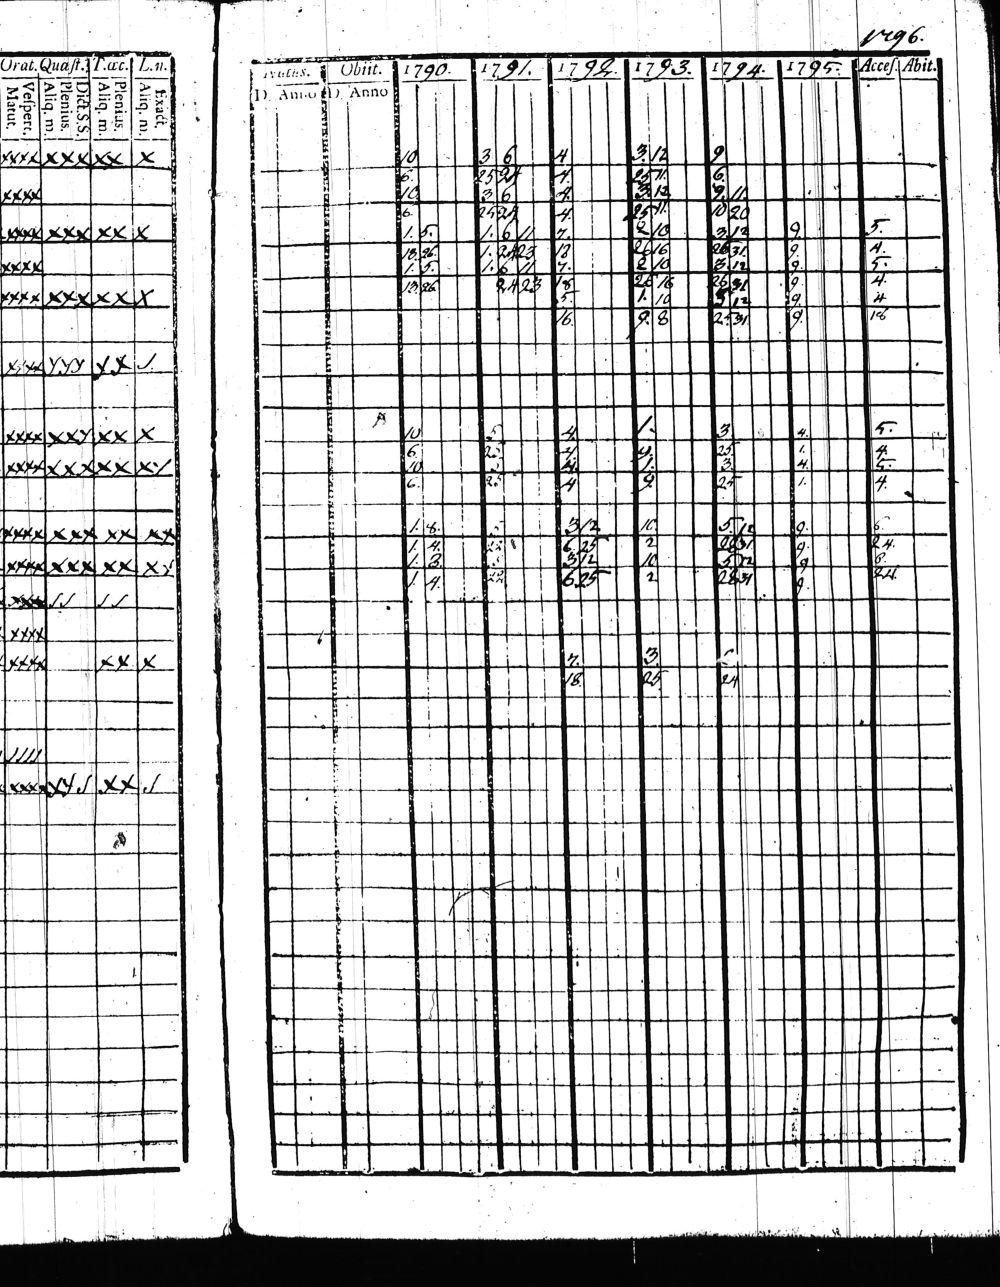 1796.
Orat. Quæst. T. œc. L. n.
Matut. Vespert. Aliq. m. Plenius. Dict. S. S. Aliq. m. Plenius. Aliq. m. Exact.
Obiit. 1790. 1791. 1792. 1793. 1794. 1795. Acces. Abit.
D. Anno D. Anno
xxxx xxx xx x 10 3 6 4 3. 12 9
6. 25 24 4. 25 11. 6.
xxxx 10. 3 6 4. 3. 12 9. 11.
6. 25 24 4. 25 11. 10 20
xxxx xxx xx x 1. 5. 1. 6 11 7. 2 10 3. 12 9. 5.
13. 26. 1. 24 23 18 26 16 26 31. 9. 4.
xxxx 1. 5. 1. 6 11 7. 2 10 3. 12 9. 5.
13. 26 24 23 18 26 16 26 31 9. 4.
xxxx xxx xx x 5. 1. 10 3 12 9. 4
16. 9. 8 25 31. 9. 18
xxxx xx
xxxx xxy xx x 10 5 4. 1. 3. 4. 5.
6. 25 4. 9. 25. 1. 4.
xxxx xxx xx 10 4. 1. 3. 4. 5.
6. 25 4 9. 25 1. 4.
xxxx xxx xx xx 1. 8. 3 12 10. 5 12 9. 6.
1. 4. 6. 25 2 28 31 9. 24.
xxxx xxx xx 1. 3. 3 12 10 5 12 9 8.
1. 4. 6 25 2 28 31 9.
xxxx
xxxx xx x 7. 3.
18. 25 24
xxxx xx